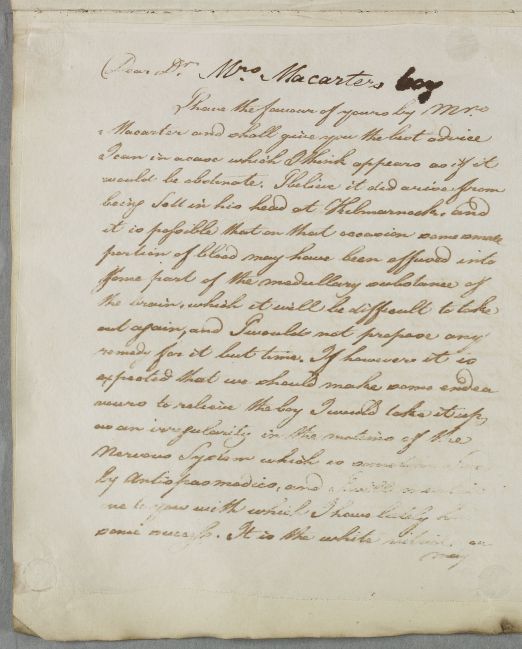 Dear Dr. Mrs. Macarters boy
I have the favour of yours by Mrs.
Macarter and shall give you the best advice
I can in a case which I think appears as if it
would be obstinate. I believe it did arise from
being in his head at Kilmarnock, and
it is possible that on that occasion some small
portion of blood may have been effused into
some part of the medullary substance of
the brain, which it will be difficult to take
out again, and I would not propose any
remedy for it but time. If however it is
expected that we should make some endea
vours to relieve the boy I would take it up,
as an irregularity in the motions of the
Nervous System which is
by Antispasmodics, and
one to you with which I have lately
some success. It is the white
may